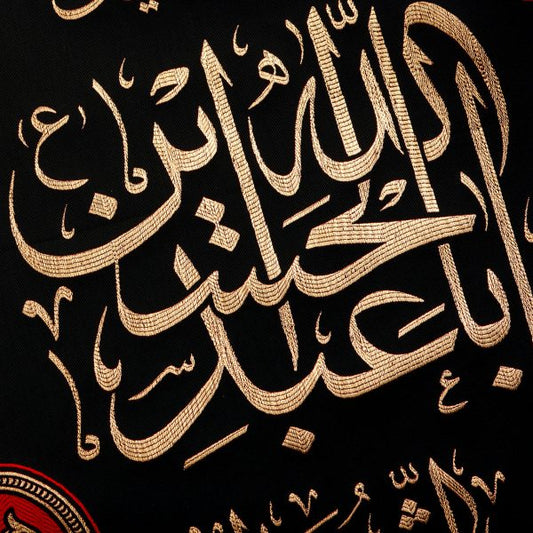 ابا عبد الله الحسين